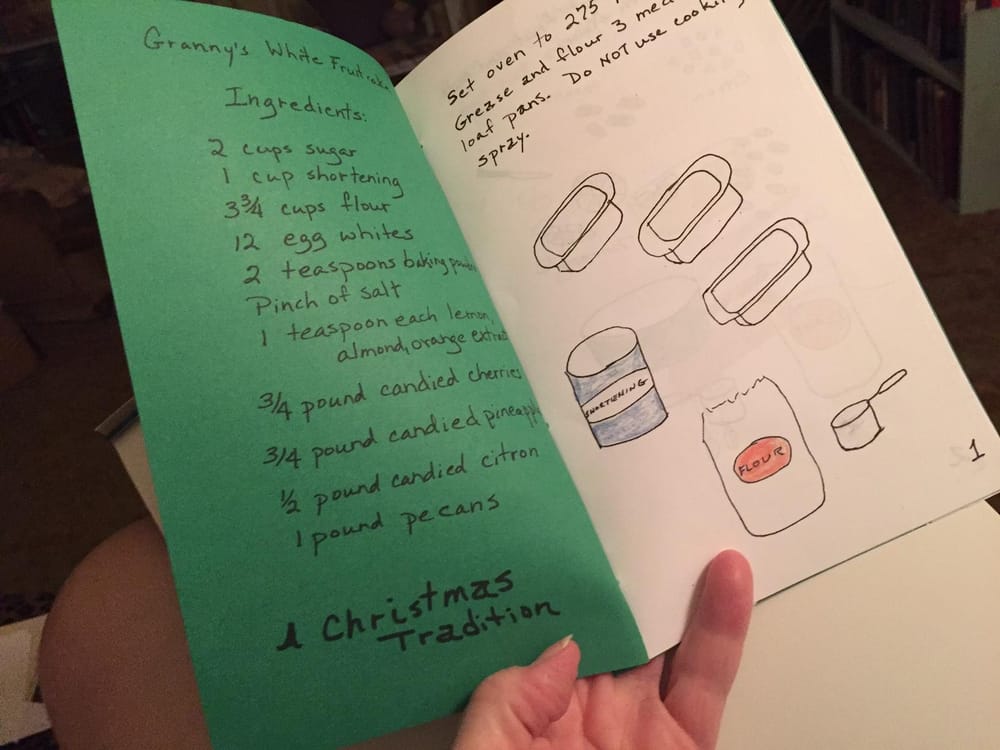 Granny's White Fruitcake
Ingredients:
2 cups sugar
1 cup shortening
3 3/4 cups flour
12 egg whites
2 teaspoons baking powder
Pinch of salt
1 teaspoon each lemon,
almond, orange extract
3/4 pound candied cherries
3/4 pound candied pineapple
1/2 pound candied citron
1 pound pecans
A Christmas
Tradition
Set oven to 275
Grease and flour 3
loaf pans. Do NOT use cooking
spray.
SHORTENING
FLOUR
1